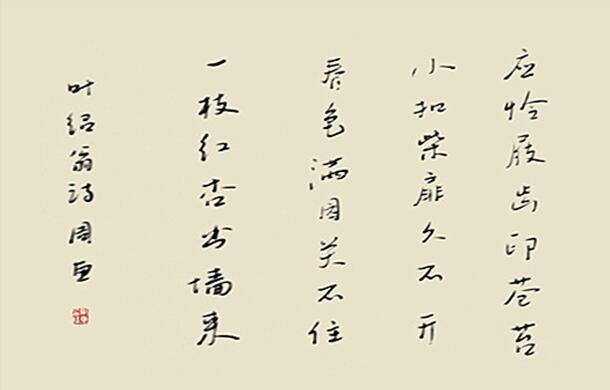 应怜屐齿印苍苔
小扣柴扉久不开
春色满园关不住
一枝红杏出墙来
叶绍翁诗周